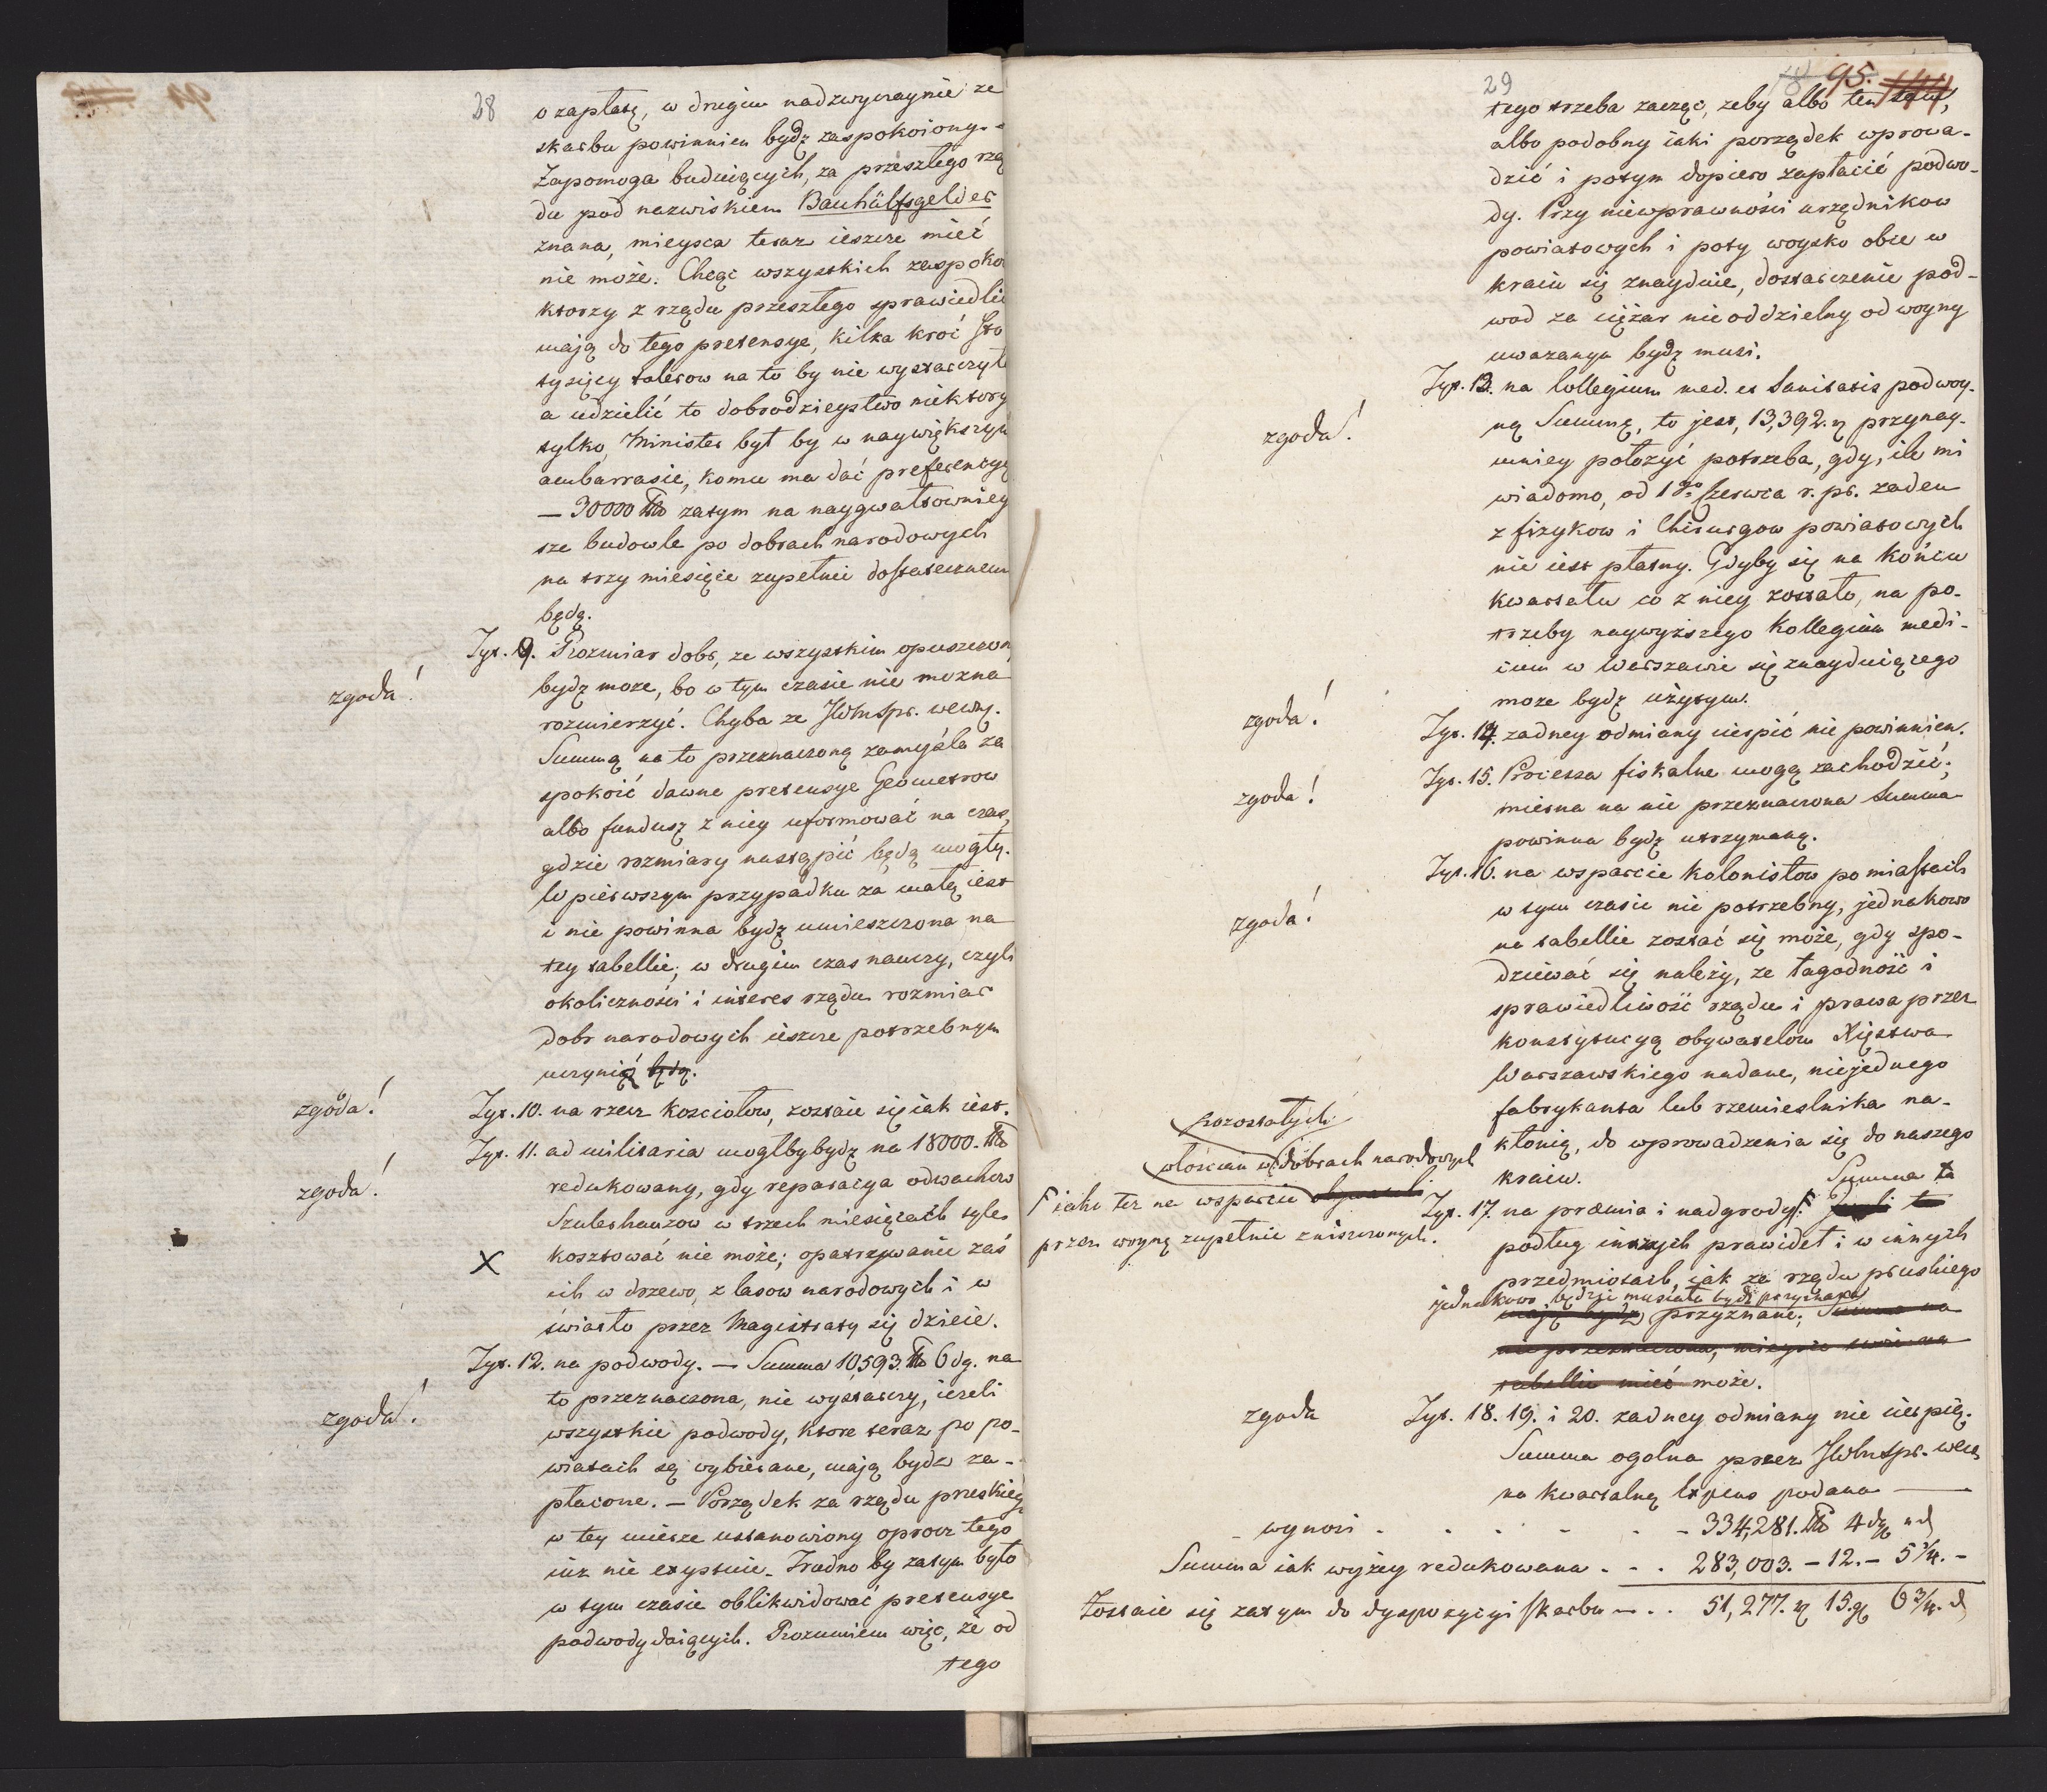 28
o zapłatę, w drugim nadzwyczaynie ze
skarbu powinnien bydź zaspokoiony. -
Zapomoga buduiących, za przeszłego rzą
du pod nazwiskiem Bauhülfsgelder
znana, mieysca teraz ieszcze mieć
nie może. Chcąc wszystkich zaspoko
ktorzy z rządu przeszłego sprawiedli
mają do tego pretensye, kilka kroć sto
tysięcy talerow na to by nie wystarczył
a udzielić to dobrodzieystwo niektory
tylko, Minister był by w naywiększym
ambarrasie, komu ma dać preferencyę
— 30000 zatym na naygwałtowniey
sze budowle po dobrach narodowych
na trzy miesięcie zupełnie dostatecznem
będą.
zgoda!
Tyt. 9. Rozmiar dobr, ze wszystkim opuszczon
bydź może, bo w tym czasie nie można
rozmierzyć. Chyba ze JWMspr. wewn.
Summą na to przeznaczoną zamyśla za
spokoić dawne pretensye Geometrow
albo fundusz z niey uformować na czas,
gdzie rozmiary nastąpić będą mogły.
W pierwszym przypadku za małą iest
i nie powinna bydź umieszczona na
tey tabellie; w drugim czas nauczy, czyli
okoliczności i interes rządu rozmiar
dobr narodowych ieszcze potrzebnym
uczynią będą.
zgoda!
Tyt. 10. na rzecz Kosciołow, zostaie się iak iest.
zgoda!
Tyt. 11. ad militaria mogłby bydź na 18000.
redukowany, gdy reparacya odwachow
Szulerhauzow w trzech miesiącach tyle
X
kosztować nie może; opatrzywanie zaś
ich w drzewo, z lasow narodowych i w
światło przez Magistraty się dzieie.
zgoda!
Tyt. 12. na podwody. — Summa 10,593. 6 dg. na
to przeznaczona, nie wystarczy, iezeli
wszystkie podwody, ktore teraz po po-
wiatach są wybierane, mają bydz za-
płacone. — Porządek za rządu pruskieg
w tey mierze ustanowiony oprocz tego
iuz nie exystuie. Trudno by zatym było
w tym czasie oblikwidować pretensye
podwody daiących. Rozumiem więc, że od
tego
29
95.
tego trzeba zacząć, zeby albo ten sam,
albo podobny iaki porządek wprowa-
dzić i potym dopiero zapłacić podwo-
dy. Przy niewprawności urzędnikow
powiatowych i poty woysko obce w
kraiu się znayduie, dostarczenie pod-
wod za ciężar nieoddzielny od woyny
uwazanym bydź musi.
zgoda!
Tyt. 13. na Collegium med. et Sanitatis podwoy-
ną Summę, to jest, 13,392. przynay-
mniey położyć potrzeba, gdy, ile mi
wiadomo, od 1go Czerwca r. pr. zaden
z fizykow i Chirurgow powiatowych
nie iest płatny. Gdyby się na końcu
kwartału co z niey zostało, na po-
trzeby naywyższego Kollegium medi-
cum w Warszawie się znayduiącego
może bydź użytym.
zgoda!
Tyt. 14. zadney odmiany cierpić nie powinnien.
zgoda!
Tyt. 15. Processa fiskalne mogą zachodzić;
mierna na nie przeznaczona Summa
powinna bydź utrzymaną.
zgoda!
Tyt. 16. na wsparcie Kolonistow po miastach
w tym czasie nie potrzebny, jednakowo
na tabellie zostać się może, gdy spo-
dziewać się należy, ze łagodność i
sprawiedliwość rządu i prawa przez
konstytucyą obywatelom Xięstwa
Warszawskiego nadane, niejednego
fabrykanta lub rzemieslnika na-
kłonią, do wprowadzenia się do naszego
kraiu.
Summa ta
pozostałych
włościan w dobrach narodowych
F iako tez na wsparcie obywateli
przez woynę zupełnie zniszczonych.
Tyt. 17. na præmia i nadgrody F
podług innych prawideł i w innych
przedmiotach, iak za rządu pruskiego
jednakowo będzie musiała bydź przyznaną
mają bydz przyznane; Summa na
nie przeznaczona, mieysce swoie na
tabellie mieć może.
zgoda
Tyt. 18. 19. i 20. zadney odmiany nie cierpią.
Summa ogolna przez JWMspr. wew
na kwartalną Expens podana —
wynosi - - - - - 334,281. 4 dg
Summa iak wyżey redukowana . . . 283,003. - 12. - 5 3/4. -
Zostaie się zatym do dyspozycyi skarbu — . . 51,277. 15. 6 3/4.